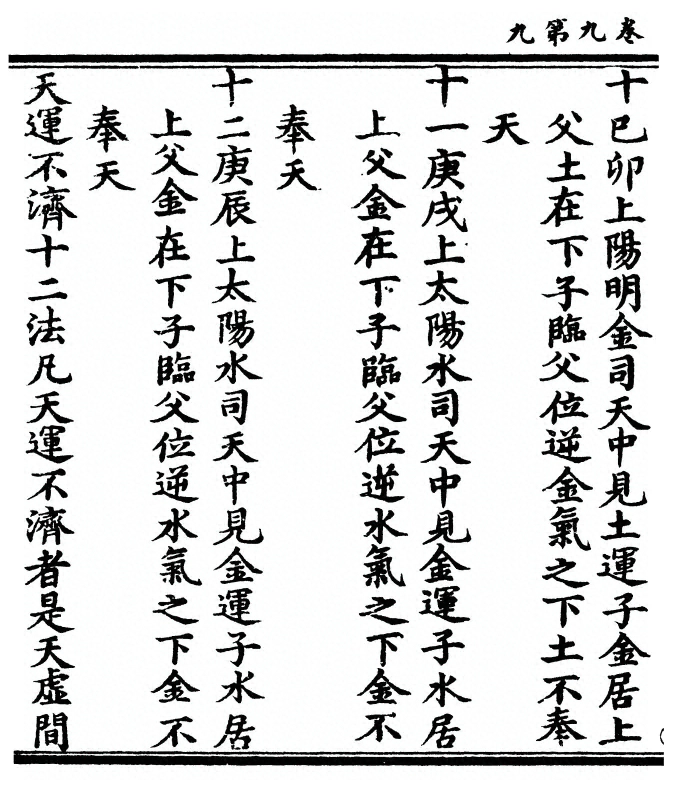 卷九第九
十巳卯上陽明金司天中見土運子金居上
父土在下子臨父位逆金氣之下土不奉
天
十一庚戌上太陽水司天中見金運子水居
上父金在下子臨父位逆水氣之下金不
奉天
十二庚辰上太陽水司天中見金運子水居
上父金在下子臨父位逆水氣之下金不
奉天
天運不濟十二法凡天運不濟者是天虛間